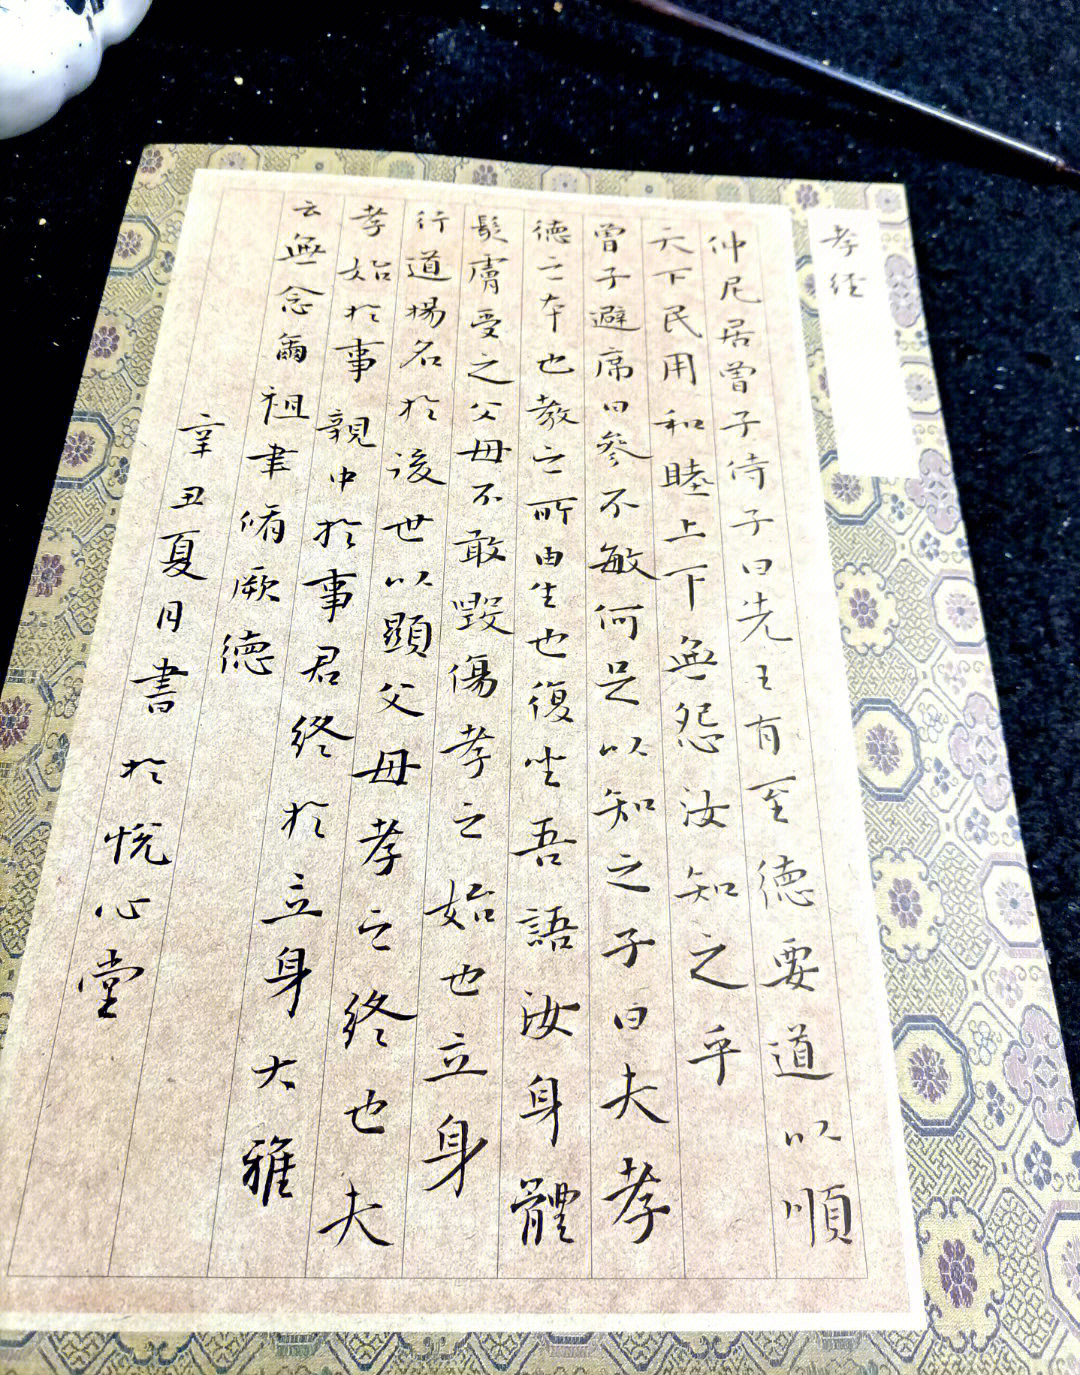 孝經
仲尼居曾子侍子曰先王有至德要道以順
天下民用和睦上下無怨汝知之乎
曾子避席曰參不敏何足以知之子曰夫孝
德之本也教之所由生也復坐吾語汝身體
髮膚受之父母不敢毀傷孝之始也立身
行道揚名於後世以顯父母孝之終也夫
孝始於事親中於事君終於立身大雅
云無念爾祖聿脩厥德
辛丑夏月書於悅心堂